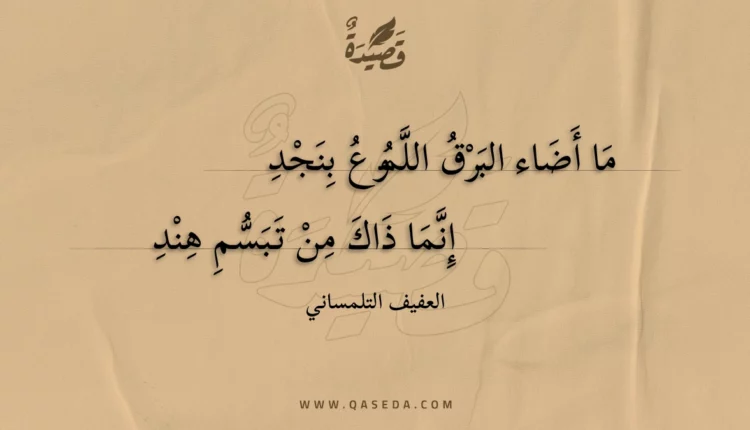 قَصِيْدَةٌ
مَا أَضَاء البَرْقُ اللَّمُوعُ بِنَجْدِ
إِنَّمَا ذَاكَ مِنْ تَبَسُّمِ هِنْدِ
العفيف التلمساني
WWW.QASEDA.COM